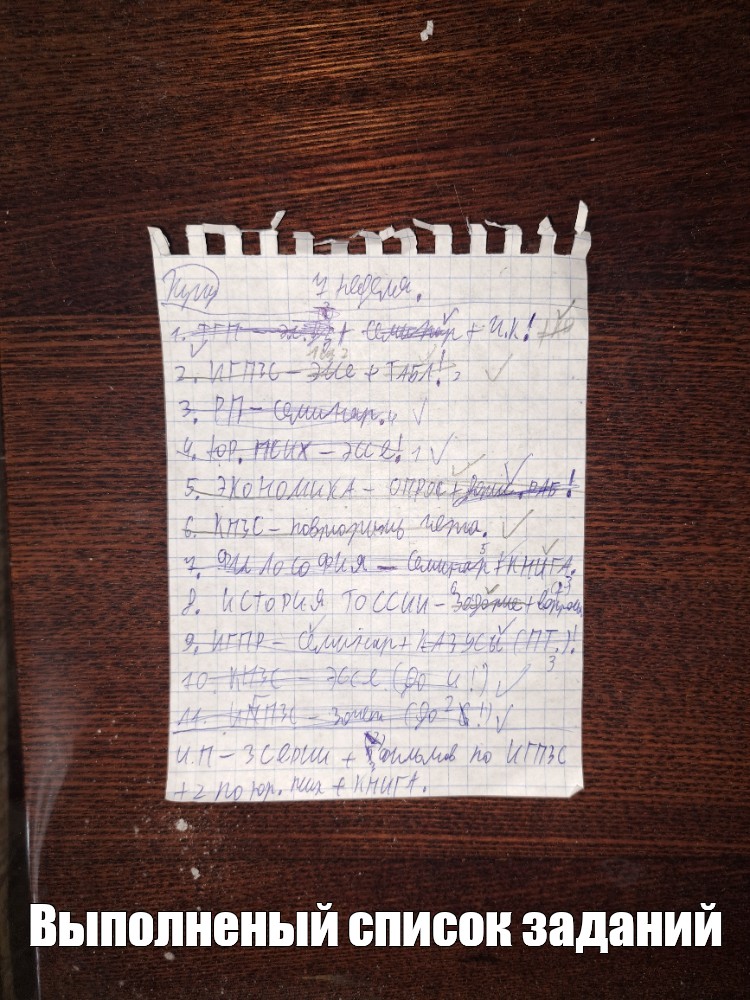 7 неделя.
1. ТГП - + семинар + И.К!
2. ИГПЗС - эссе + ТАБЛ!
3. РП - семинар.
4. юр. псих - эссе!
5. ЭКОНОМИКА - опрос + !
6. КПЗС -
7. ФИЛОСОФИЯ - семинар + КНИГА.
8. ИСТОРИЯ РОССИИ - задание +
9. ИГПР - семинар + КАЗУСЫ (ПТ.)!
10. КПЗС - эссе (до !)
11. ИГПЗС - зачет (до !)
И.П - 3 серии + фильмов по ИГПЗС
+ 2 по юр. псих + КНИГА.
Выполненый список заданий